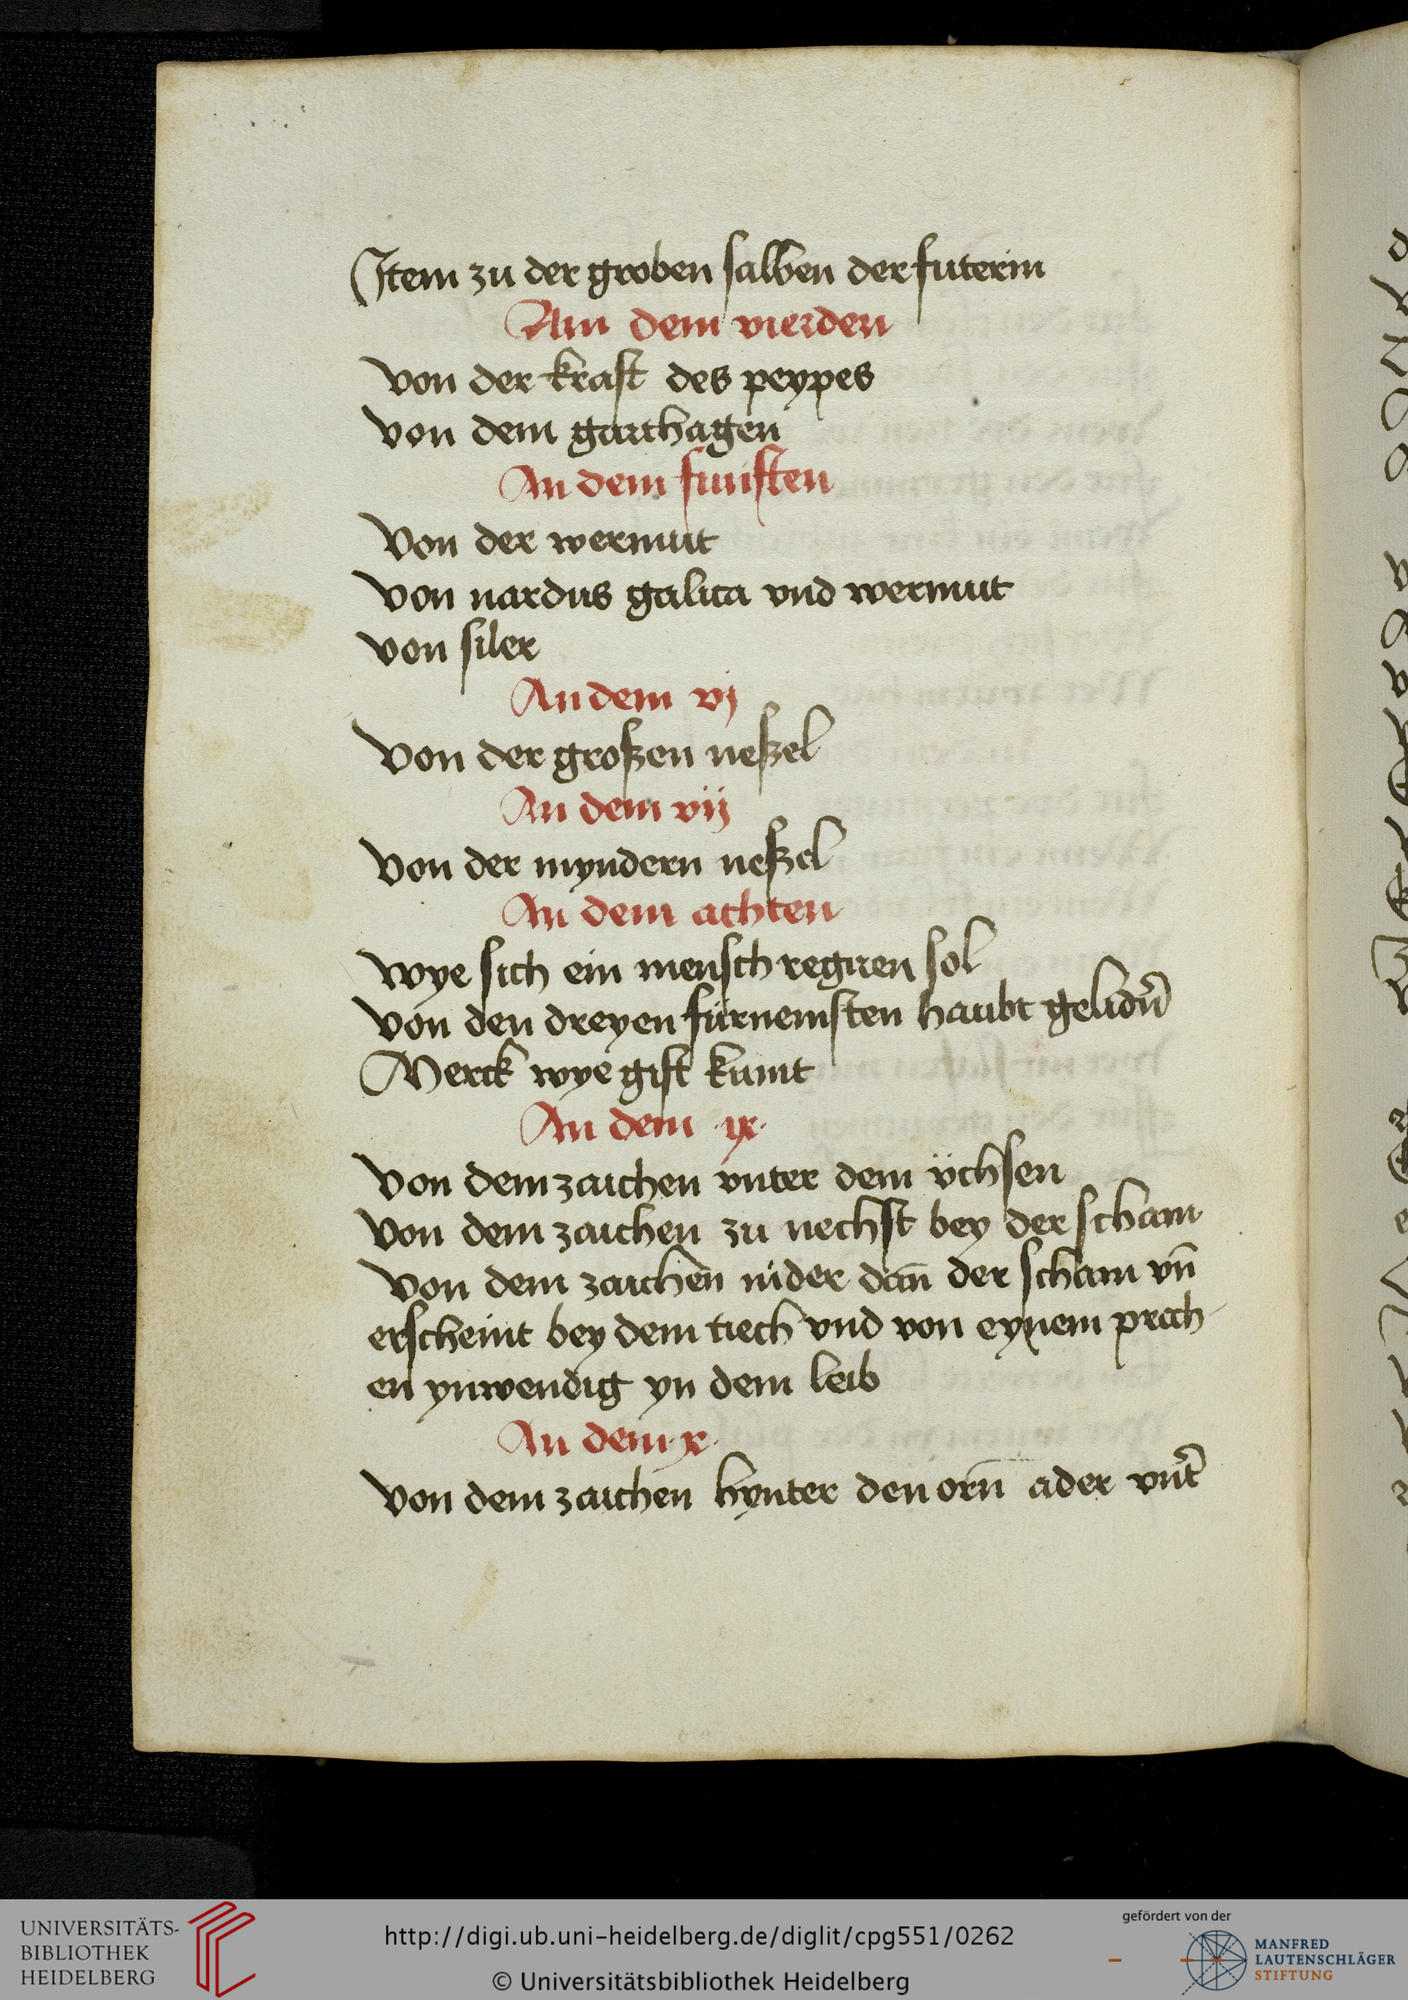 Jtem zu der groben salben der futerin
Am dem vierden
von der kraft des peypes
von dem garthagen
An dem funften
Von der wermut
von nardus galica vnd wermut
von siler
An dem vj
Von der großen neßel
An dem vij
von der myndern neßel
An dem achten
wye sich ein mensch regiren sol
von den dreyen fürnemsten haubt gelidn̄
Merck wye gift kumt
An dem ·ix·
von dem zaichen vnter dem ÿchsen
von dem zaichen zu nechst bey der scham
von dem zaichen nider dan̄ der scham vn̄
erscheint bey dem tiech vnd von eynem prech-
en ynwendig yn dem leib
An dem·x·
von dem zaichen hynter den orn̄ ader vnt̄
UNIVERSITÄTS-
BIBLIOTHEK
HEIDELBERG
http://digi.ub.uni-heidelberg.de/diglit/cpg551/0262
© Universitätsbibliothek Heidelberg
gefördert von der
MANFRED
LAUTENSCHLÄGER
STIFTUNG